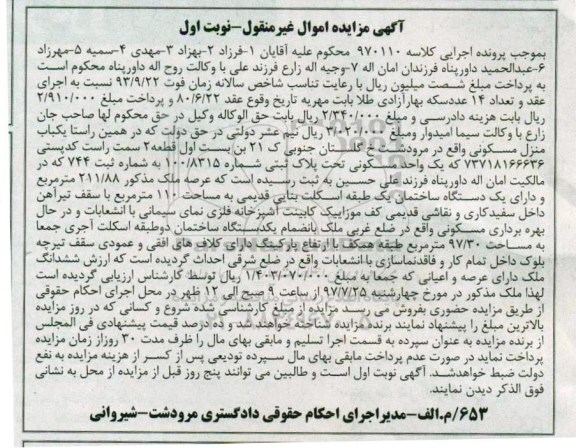 آگهی مزایده اموال غیرمنقول-نوبت اول
بموجب پرونده اجرایی کلاسه ۹۷۰۱۱۰ محکوم علیه آقایان ۱-فرزاد ۲-بهزاد ۳-مهدی ۴-سمیه ۵-مهرزاد
۶-عبدالحمید داورپناه فرزندان امان اله ۷-وجیه اله زارع فرزند علی با وکالت روح اله داورپناه محکوم است
به پرداخت مبلغ شصت میلیون ریال با رعایت تناسب شاخص سالانه زمان فوت ۹۳/۹/۲۲ نسبت به اجرای
عقد و تعداد ۱۴ عددسکه بهارآزادی طلا بابت مهریه تاریخ وقوع عقد ۸۰/۶/۲۲ و پرداخت مبلغ ۲/۹۱۰/۰۰۰
ریال بابت هزینه دادرسی و مبلغ ۲/۳۴۰/۰۰۰ ریال بابت حق الوکاله وکیل در حق محکوم لها صاحب جان
زارع با وکالت سیما امیدوار ومبلغ ۳/۰۲۰/۰۰۰ ریال نیم عشر دولتی در حق دولت که در همین راستا یکباب
منزل مسکونی واقع در مرودشت خ گلستان جنوبی ک ۲۱ بن بست اول قطعه۲ سمت راست کدپستی
۷۳۷۱۸۱۶۶۶۳۶ که یک واحد مسکونی تحت پلاک ثبتی شماره ۱۰۰/۸۳۱۵ به شماره ثبت ۷۴۴ که در
مالکیت امان اله داورپناه فرزند علی حسین به ثبت رسیده است که عرصه ملک مذکور ۲۱۱/۸۸ مترمربع
و دارای یک دستگاه ساختمان یک طبقه اسکلت بنایی قدیمی به مساحت ۱۱۰ مترمربع با سقف تیرآهن
داخل سفیدکاری و نقاشی قدیمی کف موزاییک کابینت آشپزخانه فلزی نمای سیمانی با انشعابات و در حال
بهره برداری مسکونی واقع در ضلع غربی ملک بانضمام یکدستگاه ساختمان دوطبقه اسکلت آجری جمعا
به مساحت ۹۷/۳۰ مترمربع طبقه همکف با ارتفاع پارکینگ دارای کلاف های افقی و عمودی سقف تیرچه
بلوک داخل تمام کار و فاقدنماسازی با انشعابات واقع در ضلع شرقی احداث گردیده است که ارزش ششدانگ
ملک دارای عرصه و اعیانی که جمعا به مبلغ ۱/۴۰۳/۰۷۰/۰۰۰ ریال توسط کارشناس ارزیابی گردیده است
لهذا ملک مذکور در مورخ چهارشنبه ۹۷/۷/۲۵ از ساعت ۹ صبح الی ۱۲ ظهر در محل اجرای احکام حقوقی
از طریق مزایده حضوری بفروش می رسد مزایده از مبلغ کارشناسی شده شروع و کسانی که در روز مزایده
بالاترین مبلغ را پیشنهاد نمایند برنده مزایده شناخته خواهند شد و ده درصد قیمت پیشنهادی فی المجلس
از برنده مزایده به عنوان سپرده به قسمت اجرا تسلیم و مابقی بهای مال را ظرف مدت ۳۰ روزاز زمان مزایده
پرداخت نماید در صورت عدم پرداخت مابقی بهای مال سپرده تودیعی پس از کسر از هزینه مزایده به نفع
دولت ضبط خواهدشد. آگهی نوبت اول است و طالبین می توانند پنج روز قبل از مزایده از محل به نشانی
فوق الذکر دیدن نمایند.
۶۵۳/م.الف-مدیراجرای احکام حقوقی دادگستری مرودشت-شیروانی